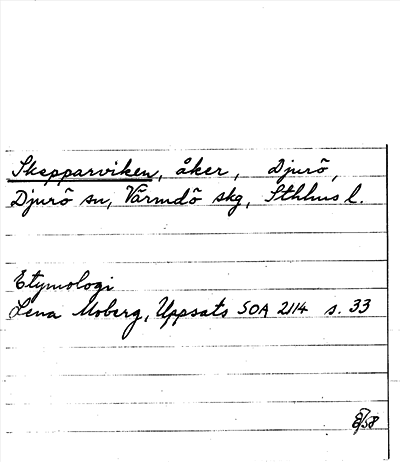 Skepparviken, åker, Djurö,
Djurö sn, Värmdö skg, Sthlms l.
Etymologi
Lena Moberg, Uppsats SOA 2114 s. 33